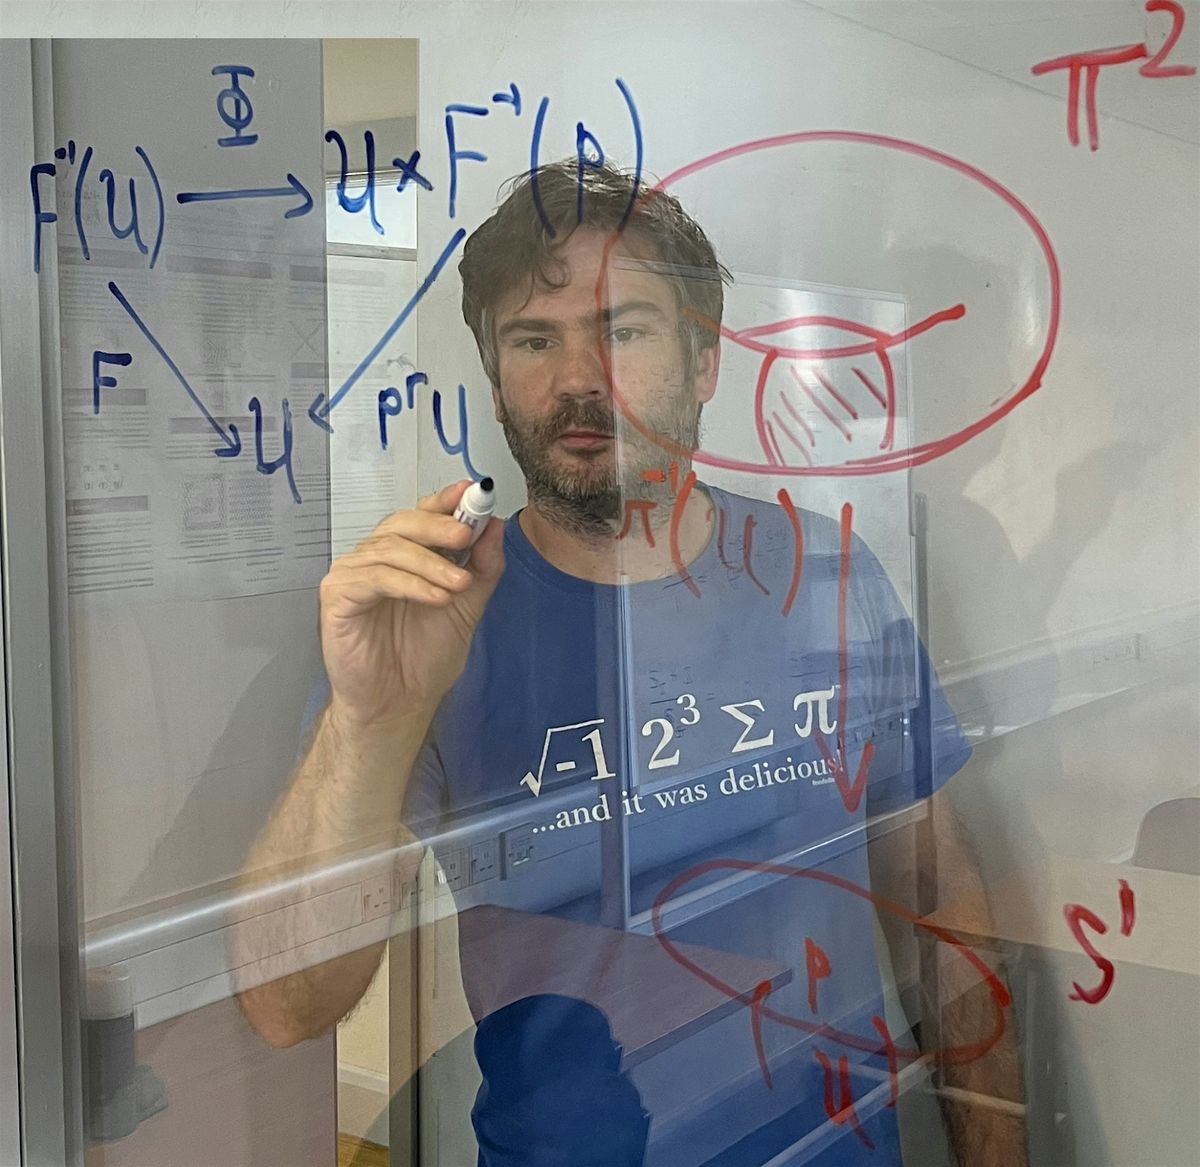 Φ
F⁻¹(U) → U × F⁻¹(p)
F
U
pr U
π²
π⁻¹(U)
S¹
p
U
√-1 2³ Σ π
...and it was delicious!